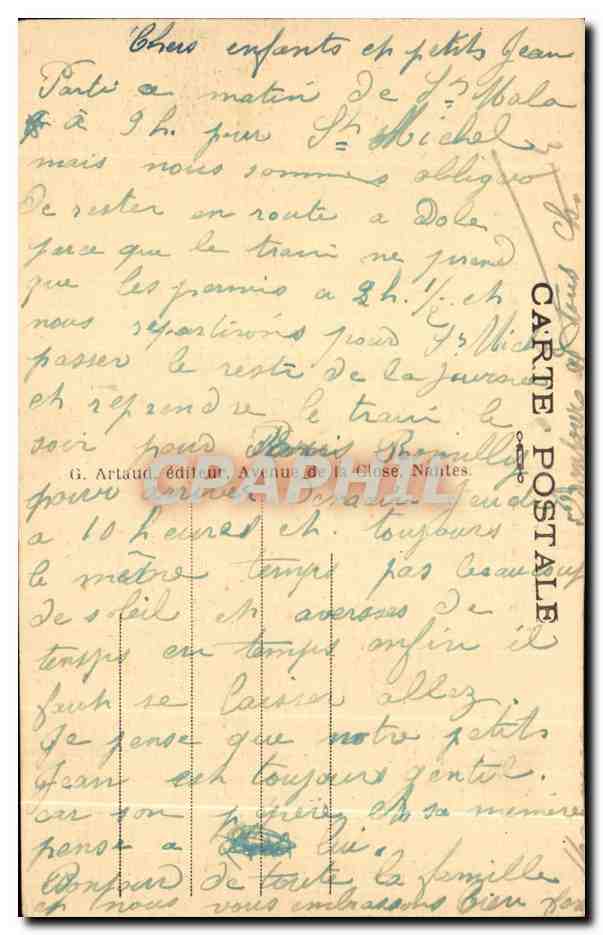 Chers enfants et petits Jean
Parti ce matin de St Malo
à 9 h. pour St Michel
mais nous sommes obligво
De rester en route a Dole
parce que le train ne prend
que les permis a 2 h. 1/2. et
nous repartirons pour St Mich
passer le reste de la journee
et reprendre le train le
soir pour Romilly
G. Artaud, éditeur, Avenue de la Close, Nantes.
pour jeudi
a 10 heures et. toujours
le même temps pas beaucoup
de soleil et averses de
temps en temps enfin il
faut se laisser allez.
Je pense que notre petits
Jean est toujours gentil.
car son pépère et sa mémère
pense a lui.
Bonjour de toute la famille
et nous vous embrassons bien
CARTE POSTALE
CARTPHIL